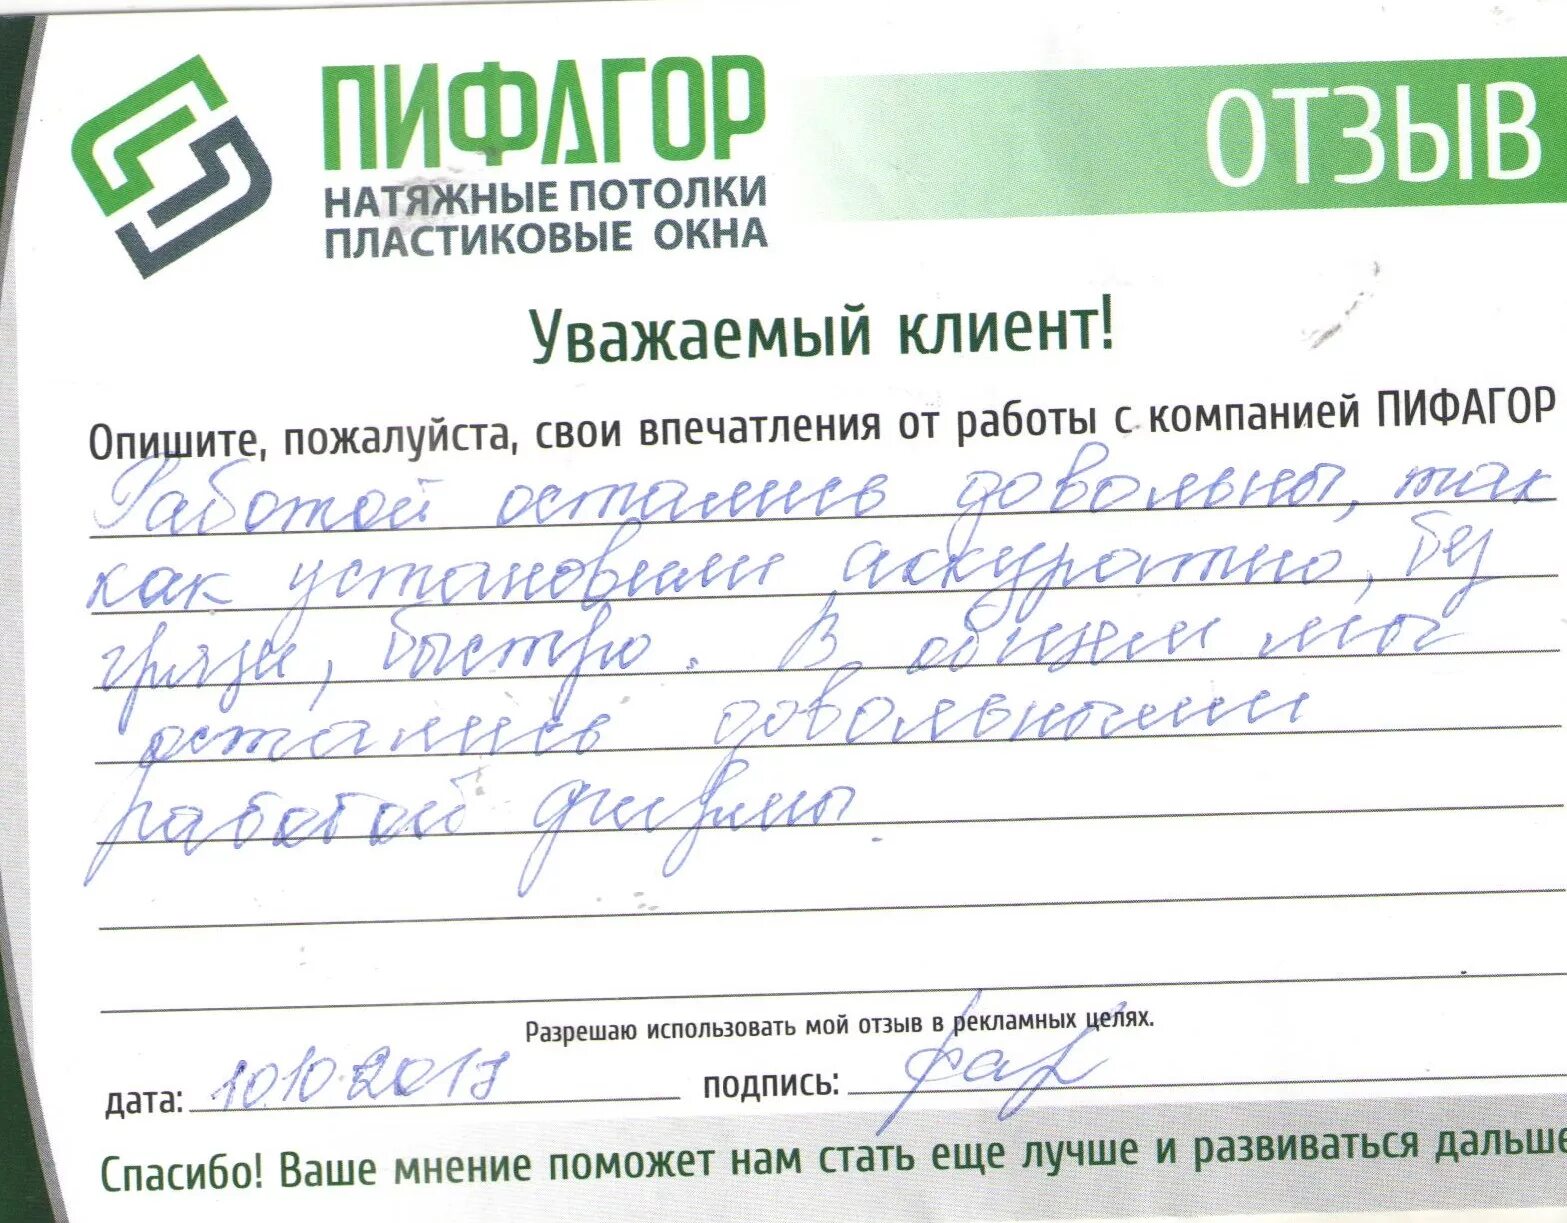 ПИФАГОР
НАТЯЖНЫЕ ПОТОЛКИ
ПЛАСТИКОВЫЕ ОКНА
ОТЗЫВ
Уважаемый клиент!
Опишите, пожалуйста, свои впечатления от работы с компанией ПИФАГОР
Работой остались довольны, так
как установили аккуратно, без
грязи, быстро. В общем мы
остались довольными
работой фирмы.
Разрешаю использовать мой отзыв в рекламных целях.
дата: 10.10.2017 подпись:
Спасибо! Ваше мнение поможет нам стать еще лучше и развиваться дальше